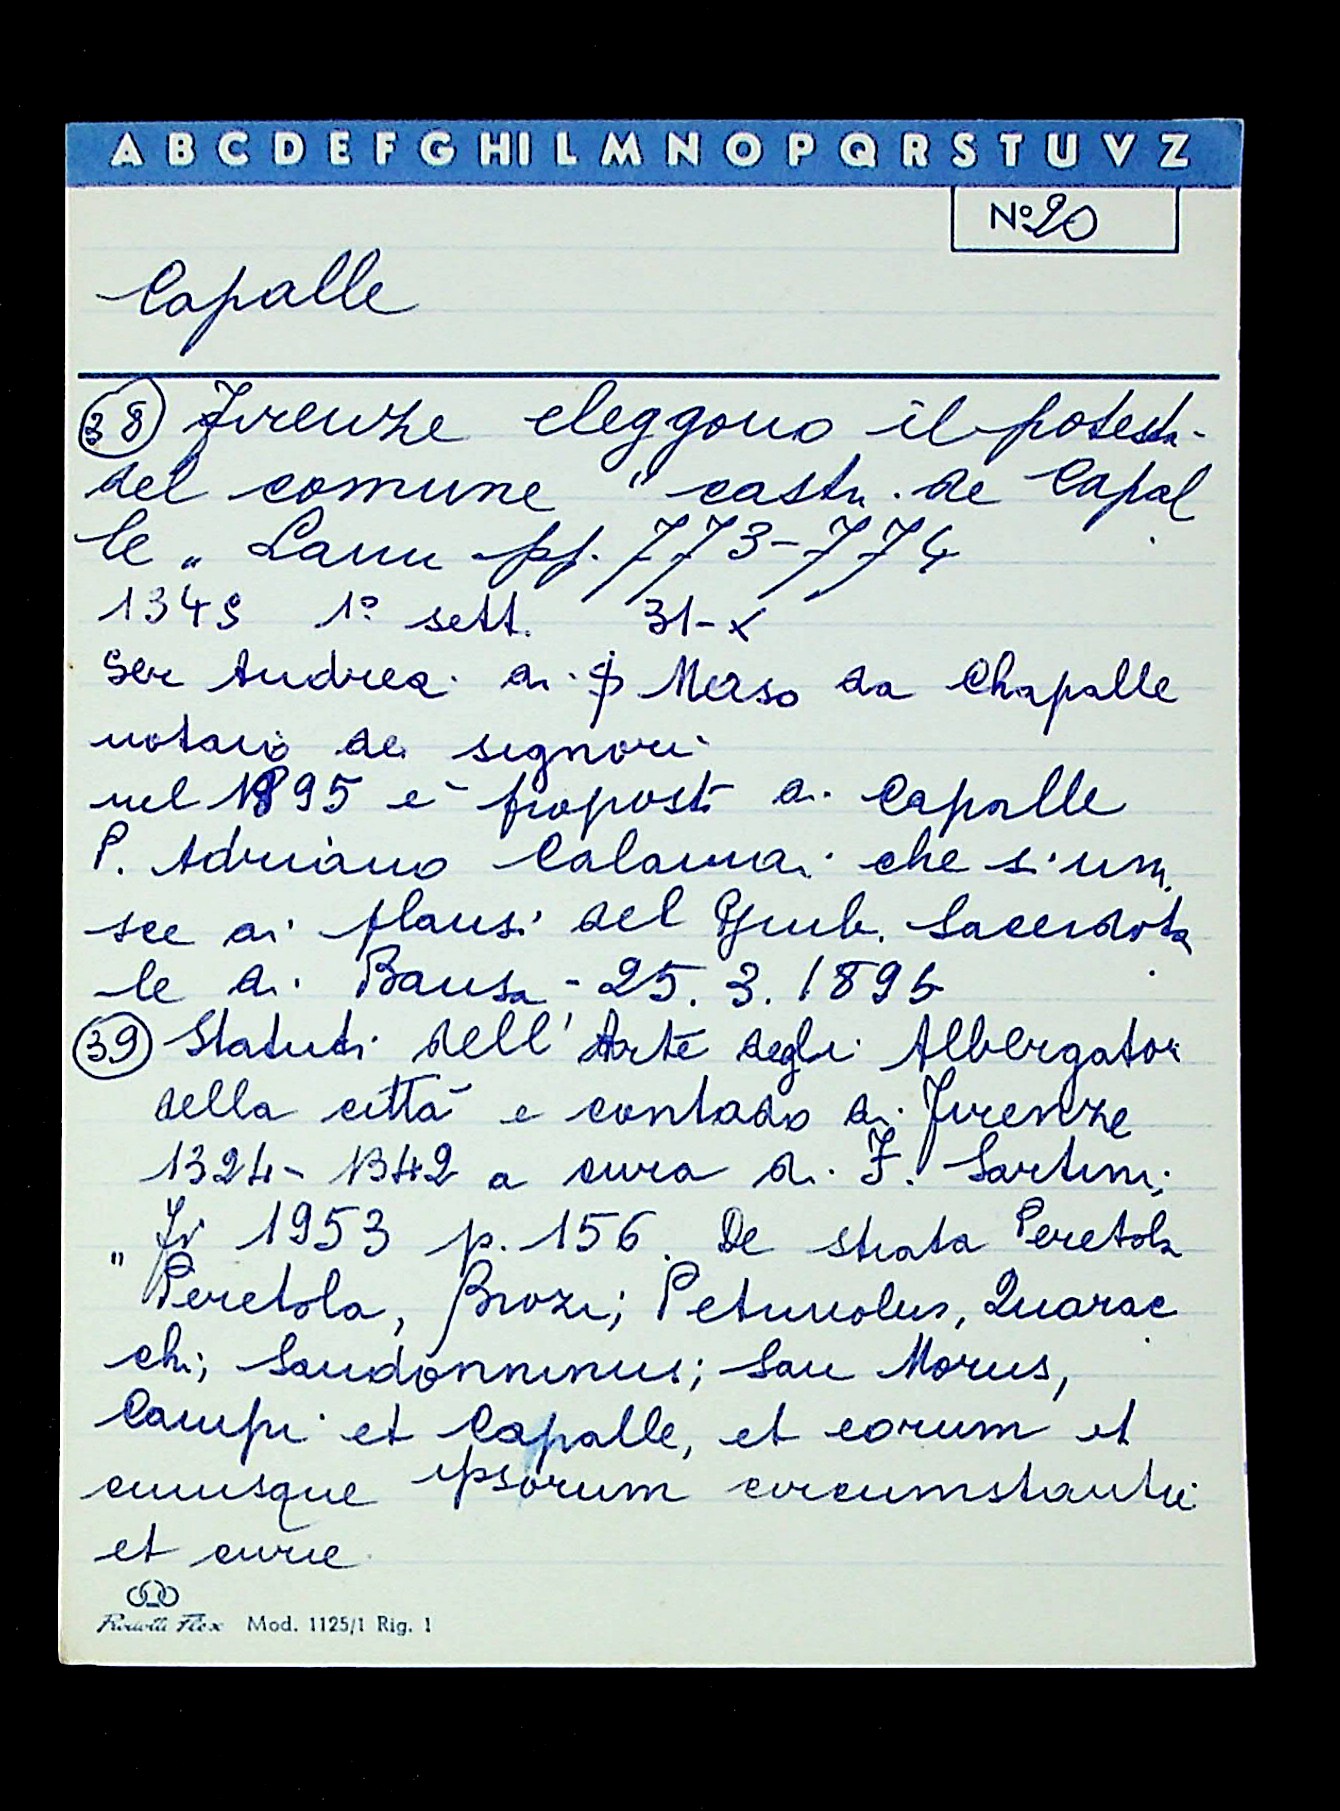 A B C D E F G H I L M N O P Q R S T U V Z
N° 20
Capalle
38 Firenze eleggono il potestà
del comune " castri de Capal
le " Lami pp. 773-774
1349 1° sett. 31-X
Ser Andrea di Merso da Chapalle
notaio dei signori
nel 1895 è proposto di Capalle
P. Adriano Calamai che s'uni
sce ai plausi del Giub. Sacerdota
le di Bausa - 25. 3. 1895
39 Statuti dell'Arte degli Albergatori
della città e contado di Firenze
1324-1342 a cura di F. Sartini;
Fi 1953 p. 156. De strata Peretola
" Peretola, Brozi; Petriuolus, Quarac
chi; Sandonninus; San Morus,
Campi et Capalle, et eorum et
cuiusque ipsorum circumstantie
et curie
Mod. 1125/1 Rig. 1